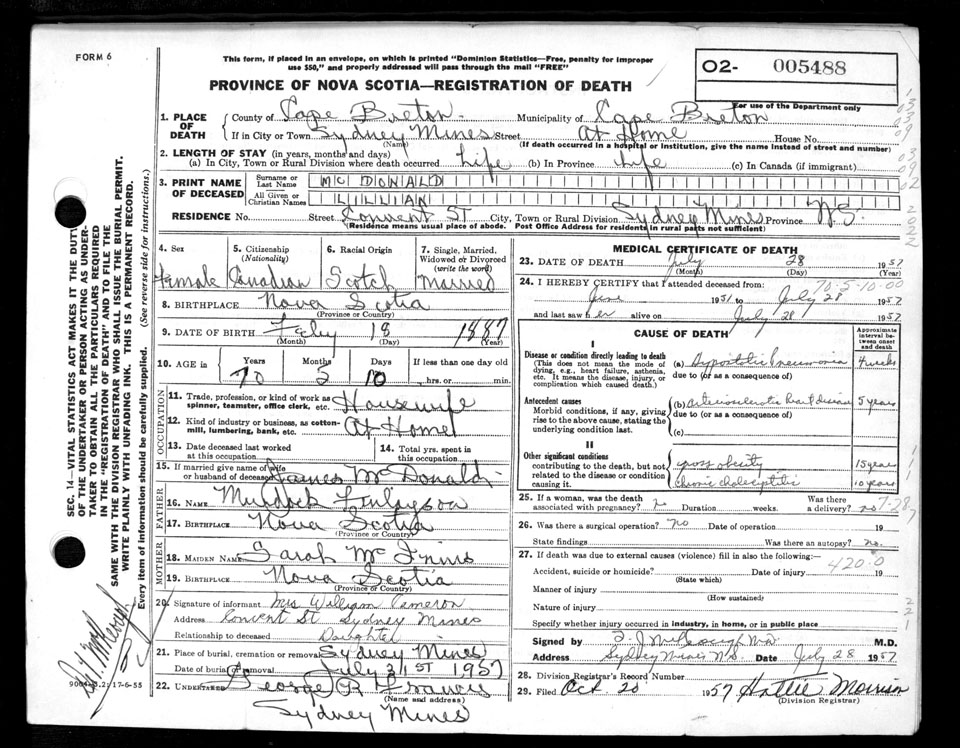 FORM 6
This form, if placed in an envelope, on which is printed "Dominion Statistics—Free, penalty for improper
use $50," and properly addressed will pass through the mail "FREE"
O2- 005488
For use of the Department only
PROVINCE OF NOVA SCOTIA—REGISTRATION OF DEATH
1. PLACE OF DEATH
County of Cape Breton Municipality of Cape Breton
If in City or Town Sydney Mines Street At Home House No.
(Name) (If death occurred in a hospital or institution, give the name instead of street and number)
2. LENGTH OF STAY (in years, months and days)
(a) In City, Town or Rural Division where death occurred Life (b) In Province Life (c) In Canada (if immigrant)
3. PRINT NAME OF DECEASED
Surname or Last Name MC DONALD
All Given or Christian Names LILLIAN
RESIDENCE No. Street Convent ST City, Town or Rural Division Sydney Mines Province N.S.
(Residence means usual place of abode. Post Office Address for residents in rural parts not sufficient)
4. Sex Female
5. Citizenship (Nationality) Canadian
6. Racial Origin Scotch
7. Single, Married, Widowed or Divorced (write the word) Married
8. BIRTHPLACE Nova Scotia
(Province or Country)
9. DATE OF BIRTH Feby 18 1887
(Month) (Day) (Year)
10. AGE IN Years Months Days If less than one day old
70 5 10 hrs. or min.
OCCUPATION
11. Trade, profession, or kind of work as spinner, teamster, office clerk, etc. Housewife
12. Kind of industry or business, as cotton-mill, lumbering, bank, etc. At Home
13. Date deceased last worked at this occupation
14. Total yrs. spent in this occupation
15. If married give name of wife or husband of deceased James McDonald
FATHER
16. NAME Murdock Finlayson
17. BIRTHPLACE Nova Scotia
(Province or Country)
MOTHER
18. MAIDEN NAME Sarah McInnis
19. BIRTHPLACE Nova Scotia
(Province or Country)
20. Signature of informant Mrs William Cameron
Address Convent St Sydney Mines
Relationship to deceased Daughter
21. Place of burial, cremation or removal Sydney Mines
Date of burial or removal July 31ST 1957
22. UNDERTAKER George R Francis
(Name and address)
Sydney Mines
MEDICAL CERTIFICATE OF DEATH
23. DATE OF DEATH July 28 1957
(Month) (Day) (Year)
70-5-10-00
24. I HEREBY CERTIFY that I attended deceased from:
1951 to July 28 1957
and last saw her alive on July 28 1957.
CAUSE OF DEATH
Approximate interval between onset and death
I
Disease or condition directly leading to death
(This does not mean the mode of dying, e.g., heart failure, asthenia, etc. It means the disease, injury, or complication which caused death.)
(a) Hypostatic Pneumonia 4 weeks
due to (or as a consequence of)
Antecedent causes
Morbid conditions, if any, giving rise to the above cause, stating the underlying condition last.
(b) Arteriosclerotic heart disease 5 years
due to (or as a consequence of)
(c)
II
Other significant conditions
contributing to the death, but not related to the disease or condition causing it.
gross obesity 15 years
chronic cholecystitis 10 years
25. If a woman, was the death associated with pregnancy? Duration weeks. Was there a delivery? no
26. Was there a surgical operation? no Date of operation 19
State findings Was there an autopsy? no.
27. If death was due to external causes (violence) fill in also the following:—
420-0
Accident, suicide or homicide? Date of injury 19
(State which)
Manner of injury
(How sustained)
Nature of injury
Specify whether injury occurred in industry, in home, or in public place
Signed by M.D.
Address Sydney Mines N.S. Date July 28 1957.
28. Division Registrar's Record Number
29. Filed Oct 20 1957 Hattie Morrison
(Division Registrar)
SEC. 14—VITAL STATISTICS ACT MAKES IT THE DUTY
OF THE UNDERTAKER OR PERSON ACTING AS UNDER-
TAKER TO OBTAIN ALL THE PARTICULARS REQUIRED
IN THE "REGISTRATION OF DEATH" AND TO FILE THE
SAME WITH THE DIVISION REGISTRAR WHO SHALL ISSUE THE BURIAL PERMIT.
WRITE PLAINLY WITH UNFADING INK. THIS IS A PERMANENT RECORD.
Every item of information should be carefully supplied. (See reverse side for instructions.)
17-6-55